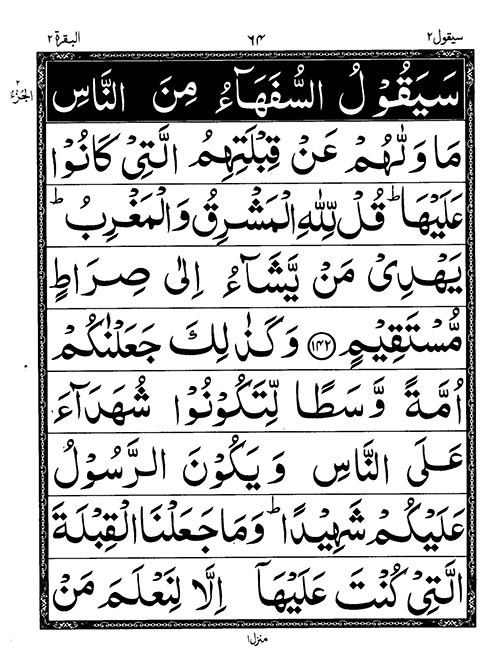 سيقول ٢ ٦٤ البقرة ٢
٢
الجزء
سَيَقُوْلُ السُّفَهَآءُ مِنَ النَّاسِ
مَا وَلّٰىهُمْ عَنْ قِبْلَتِهِمُ الَّتِيْ كَانُوْا
عَلَيْهَا ؕ قُلْ لِّلّٰهِ الْمَشْرِقُ وَالْمَغْرِبُ ؕ
يَهْدِيْ مَنْ يَّشَآءُ اِلٰى صِرَاطٍ
مُّسْتَقِيْمٍ ﴿١٤٢﴾ وَكَذٰلِكَ جَعَلْنٰكُمْ
اُمَّةً وَّسَطًا لِّتَكُوْنُوْا شُهَدَآءَ
عَلَى النَّاسِ وَيَكُوْنَ الرَّسُوْلُ
عَلَيْكُمْ شَهِيْدًا ؕ وَمَا جَعَلْنَا الْقِبْلَةَ
الَّتِيْ كُنْتَ عَلَيْهَآ اِلَّا لِنَعْلَمَ مَنْ
منزل ١